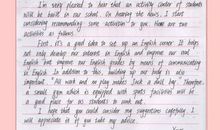 I'm very pleased to hear that an activity center of students
will be built in our school. On hearing the news, I start
considering recommending some activities to you. Here are two
activities as follows.
First, it's a good idea to set up an English corner. It helps
not only develop our interest in English and improve our oral
English but improve our English grades by means of communicating
in English. In addition to this, building up our body is also
important. "All work and no play makes Jack a dull boy." Therefore,
a small gym which is equipped with sports facilities will be
a good place for us students to work out.
I hope that you could consider my suggestions carefully. I
will appreciate it if you take my advice.